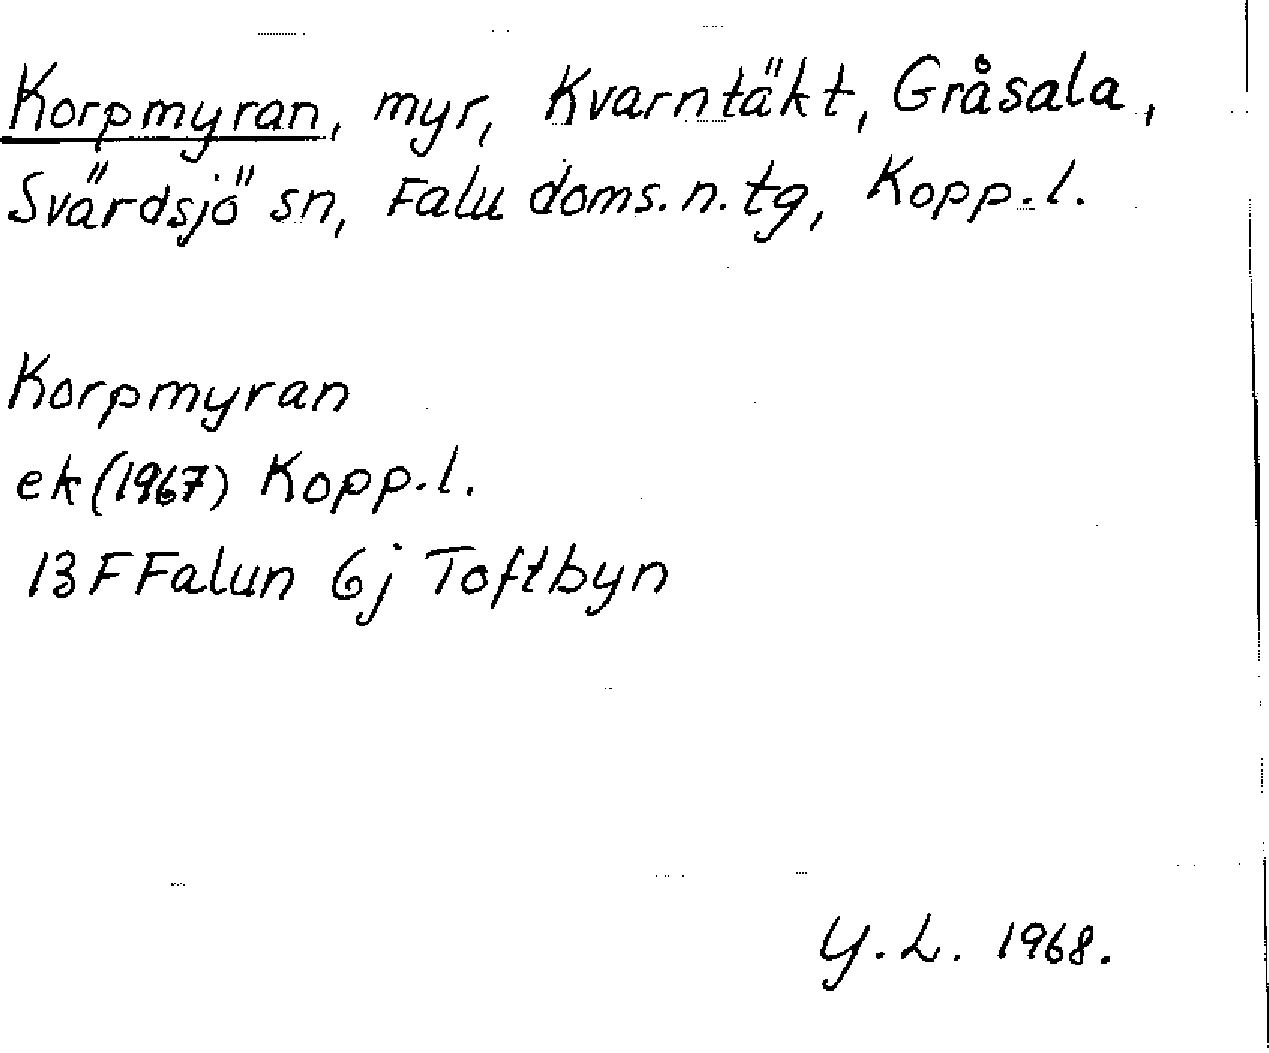 Korpmyran, myr, Kvarntäkt, Gråsala,
Svärdsjö sn, Falu doms.n.tg, Kopp.l.
Korpmyran
ek(1967) Kopp.l.
13F Falun 6j Toftbyn
Y.L. 1968.